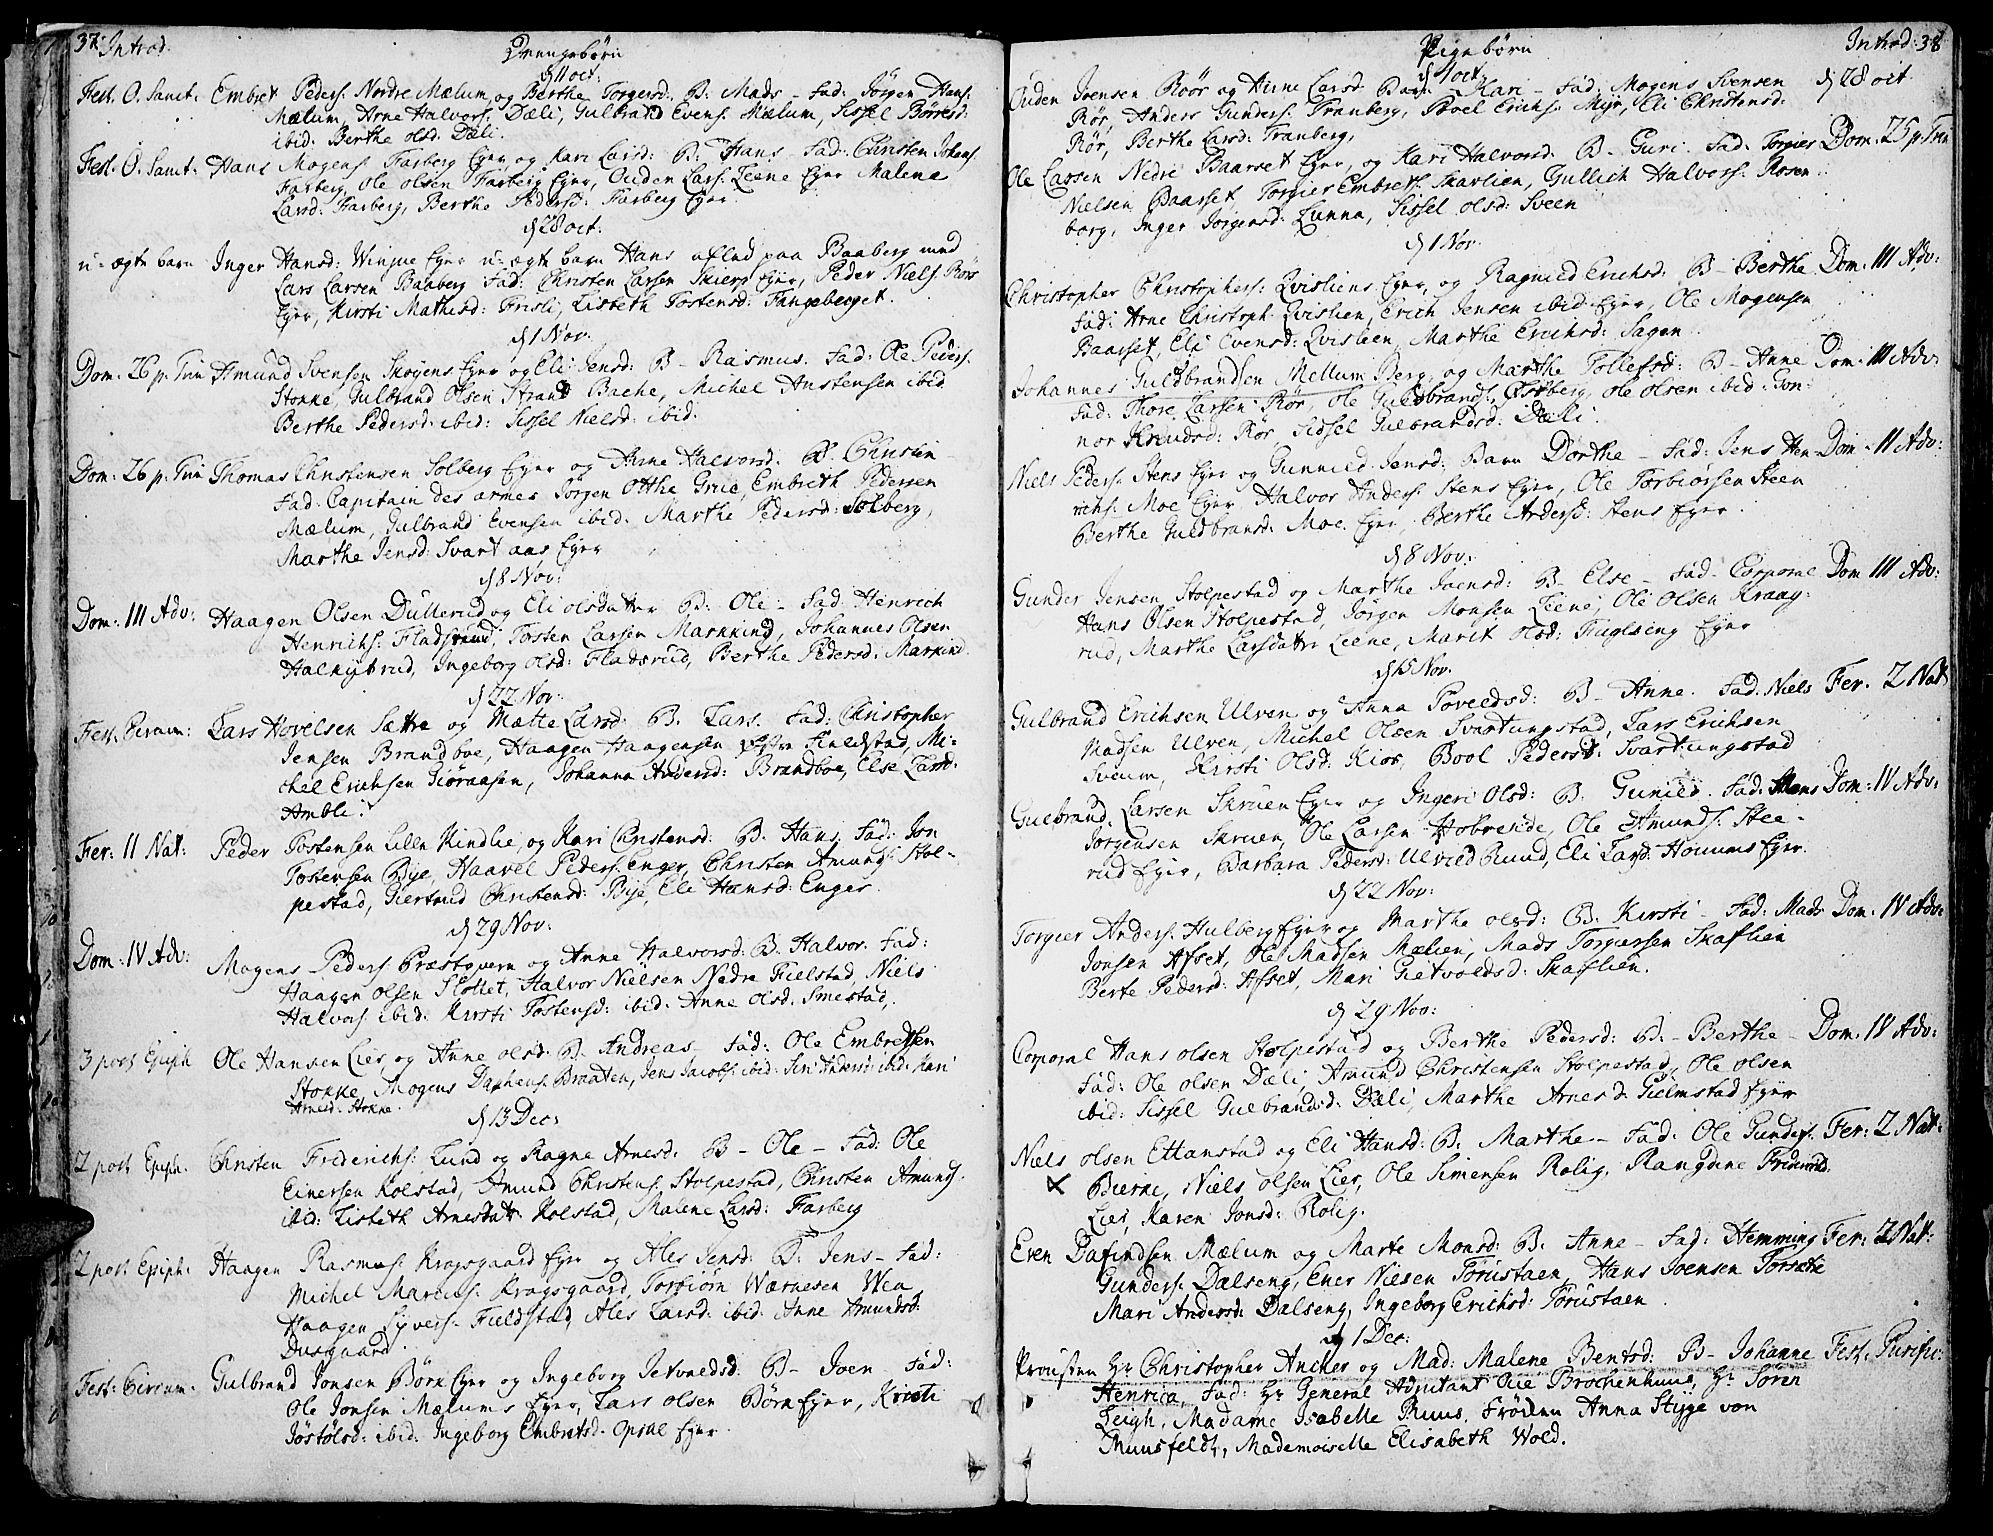 37. Introd. Drengebørn
d 11 oct:
Fest. O. Sanct. Embret Peders. Nordre Mælum og Berthe Torgersd: B: Mads - Fad: Jörgen Hans.
Mælum, Arne Halvors. Dæli, Gulbrand Evens. Mælum, Sissel Börresd:
ibid: Berthe olsd: Dæli.
Fest. O. Sanct. Hans Mogens. Farberg Eyer og Kari Larsd: B: Hans Fad: Christen Johans.
Farberg, Ole olsen Farberg Eyer, Ouden Lars. Leene Eyer Malene
Larsd: Farberg, Berthe Pedersd: Farberg Eyer.
d 28 oct:
u-ægte barn Inger Hansd: Winjue Eyer u-ægte barn Hans aflet paa Baaberg med
Lars Larsen Baaberg Fad: Christen Larsen Skiers Eyer, Peder Niels. Rörs
Eyer, Kirsti Mathisd: Frisli, Lisbeth Tostensd: Tangeberget.
d 1 Nov.
Dom. 26 p. Trin Amund Svensen Skoyens Eyer og Eli Jensd: B - Rasmus. Fad: Ole Peders.
Stokke, Gulbrand Olsen Strand Bache, Michel Anstensen ibid
Berthe Pedersd: ibid: Sissel Nielsd: ibid.
Dom. 26 p. Trin Thomas Christensen Solberg Eyer og Anne Halvorsd. B. Christin
Fad: Capitain des armes Jörgen Otthe, Grue, Embreth Pedersen
Mælum, Gulbrand Evensen ibid. Marthe Pedersd: Solberg,
Marthe Jensd: Svart aas Eyer
d 8 Nov:
Dom. III Adv: Haagen Olsen Dullerud og Eli olsdatter B: Ole - Fad: Henrich
Henrichs. Fladsrud, Tosten Larsen Markkind, Johannes Olsen
Halknybrud, Ingeborg olsd: Fladsrud, Berthe Pedersd: Markind.
d 22 Nov.
Fest. Circum: Lars Hovelsen Sætre og Mætte Larsd: B. Lars. Fad: Christopher
Jensen Brandboe, Haagen Haagensen Fieldstad, Mi-
chel Erichsen Giöraasen, Johanna Andersd: Brandboe, Else Larsd.
Ambli.
Fer: II Nat: Peder Tostensen Lille Kindlie, og Kari Christensd: B. Hans. Fad: Jon
Tostensen Bye, Haavel Peders. Enger, Christen Amunds. Stol-
pestad, Giertrud Christensd: Bye, Eli Hansd: Enger.
d 29 Nov:
Dom: IV Adv: Mogens Peders. Præsteqvern og Anne Halvorsd: B. Halvor. Fad:
Haagen Olsen Slottet, Halvor Nielsen Nedre Fielstad, Niels
Halvors. ibid: Kirsti Tostensd: ibid: Anne olsd: Smestad.
3 post Epiph Ole Hansen Lier, og Anne olsd. B. Andreas - Fad: Ole Embretsen
Stokke, Mogens Braaten, Jens Jacobs. ibid: Siri Andersd: ibid: Kari
Arnesd: Stokke.
d 13 Dec:
2 post Epiph. Christen Friderichs. Lund og Ragne Arnesd. B - Ole - Fad: Ole
Einersen Kolstad, Amund Christens. Stolpestad, Christen Amunds.
ibid: Lisbeth Arnesdatt: Kolstad, Malene Larsd: Farberg
2 post Epiph: Haagen Rasmus. Kragsgaard Eyer og Ales Jensd: B. Jens - Fad:
Michel Kragsgaard, Torbiörn Wærnesen Wea
Haagen Syvers. Fieldstad, Ales Larsd: ibid: Anne Amundsd.
Dusgaard.
Fest. Circum: Gulbrand Jonsen Börn Eyer og Ingeborg Jetvoedsd. B - Joen Fad:
Ole Jonsen Mælums Eyer, Lars olsen Börn Eyer, Kirsti
Jöstölsd: ibid. Ingeborg Embretsd. Opsal Eyer.
Pigebørn Introd: 38
d 11 oct:
Ouden Joensen Röör og Anne Larsd. Barn Kari - Fad: Mogens Svensen d 28 oct
Rör, Anders Gunders. Franberg, Boel Erichs. Myr, Eli Christensd:
Rör, Berthe Larsd: Franberg,
Ole Larsen Nedre Baarset Eyer, og Kari Halvorsd: B - Guri. Fad: Torgier Dom. 25 p. Trin
Nielsen Baarset, Torgier Embrets. Skarlien, Gullich Halvors. Rosen-
borg, Inger Jörgensd: Lunna, Sissel olsd: Sveen
d 1 Nov.
Christopher Christophers. Qvisliens Eyer, og Ragnild Erichsd: B - Berthe. Dom. III Adv:
Fad: Arne Christoph. Qvislien, Erich Jensen ibid Eyer, Ole Mogensen
Baarset, Eli Evensd: Qvislien, Marthe Erichsd: Sagen.
Johannes Guldbrandsen Mellum Berg, og Marthe Tollefsd: B - Anne Dom. III Adv:
Fad: Thore Larsen Rör, Ole Guldbrands. Östberg, ole olsen ibid: Gon-
nor Knudsd: Rör Sidsel Gulbrandsd: Dæli.
Niels Peders. Stens Eyer og Gunnild Jensd: Barn Dorthe - Fad: Jens Hen- Dom. II Adv:
richs. Moe Eyer Halvor Anders. Stens Eyer, Ole Torbiörsen Steen
Berthe Guldbransd: Moe Eyer Berthe Andersd: Stens Eyer.
d 8 Nov:
Gunder Jensen Stolpestad og Marthe Joensd: B - Else - Fad - Corporal Dom III Adv:
Hans Olsen Stolpestad, Jörgen Monsen Leene, Ole Olsen Kraag-
rud, Marthe Larsdatter Leene, Marit olsd: Fuglseng Eyer
d 15 Nov.
Gulbrand Erichsen Ulven og Anna Poveldsd: B - Anne. Fad: Niels Fer. 2 Nat
Madsen Ulven, Michel Olsen Svartungstad, Lars Erichsen
Sveum, Kirsti Olsd: Kios, Bool Pedersd: Svartungstad
Gulbrand Larsen Skruen Eyer og Ingeri Olsd: B. Gunild. Fad: Mons Dom: IV Adv:
Jorgensen Skruen, Ole Larsen Hobreide, Ole Amunds. Stee-
rud Eyer, Barbara Pedersd: Ulvild Rund, Eli Larsd: Honums Eyer.
d 22 Nov:
Torgier Anders. Hulberg Eyer og Marthe olsd: B. Kirsti - Fad: Mads Dom: IV Adv:
Jonsen Afset, Ole Madsen Mælien, Mads Torgersen Skaflien
Berte Pedersd: Afset, Mari Gietvoldsd: Skaflien.
d 29 Nov:
Corporal Hans olsen Stolpestad og Berthe Pedersd: B. - Berthe - Dom. IV Adv:
Fad: Ole olsen Dæli, Amund Christensen Stolpestad, Ole olsen
ibid: Sissel Gulbrandsd: Dæli, Marthe Arnesd Gielmstad Eyer
Niels olsen Ettanstad og Eli Hansd: B. Marthe - Fad: Ole Gunders. Fer: 2 Nat:
Bierne, Niels olsen Lier, Ole Simensen Rolig, Rangdne Fridrichsd.
Lier, Karen Jonsd: Rolig.
Even Dafindsen Mælum og Marte Monsd: B. Anne - Fad: Hemming Fer: 2 Nat:
Gunders. Dalseng, Ener Nielsen Törustaen, Hans Joensen Torsætre
Mari Andersd: Dalseng, Ingeborg Erichsd: Törustaen.
d 1 Dec:
Prousten Hr Christopher Ancher og Mad: Malene Bentsd: B - Johanne Fest. Purific:
Henrica, Fad: Hr General Adjutant Ole Brochenhuus, Hr Sören
Leigh, Madame Isabelle Ruus, Fröiken Anna Styge von
Muusfeldt, Mademoiselle Elisabeth Wold.